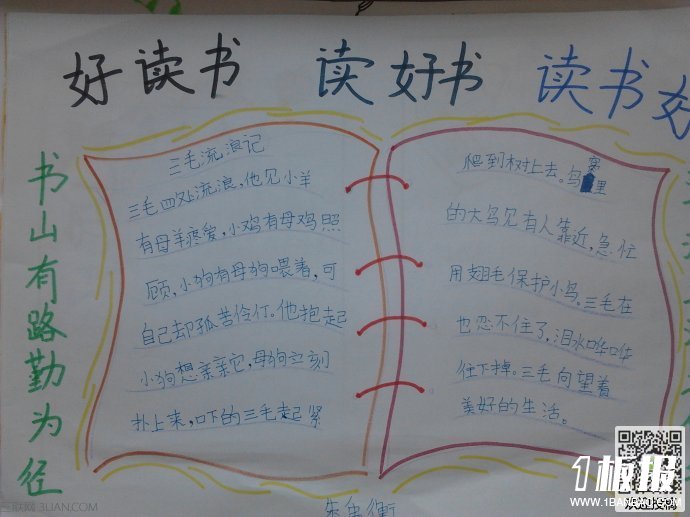 好读书 读好书 读书好
书山有路勤为径
三毛流浪记
三毛四处流浪,他见小羊
有母羊疼爱,小鸡有母鸡照
顾,小狗有母狗喂着,可
自己却孤苦伶仃。他抱起
小狗想亲亲它,母狗立刻
扑上来,吓的三毛赶紧
爬到树上去。鸟窝里
的大鸟见有人靠近,急忙
用翅毛保护小鸟。三毛在
也忍不住了,泪水哗哗
往下掉。三毛向望着
美好的生活。
1板报
WWW.1BANBAO.COM
欢迎投稿
三联网 3LIAN.COM